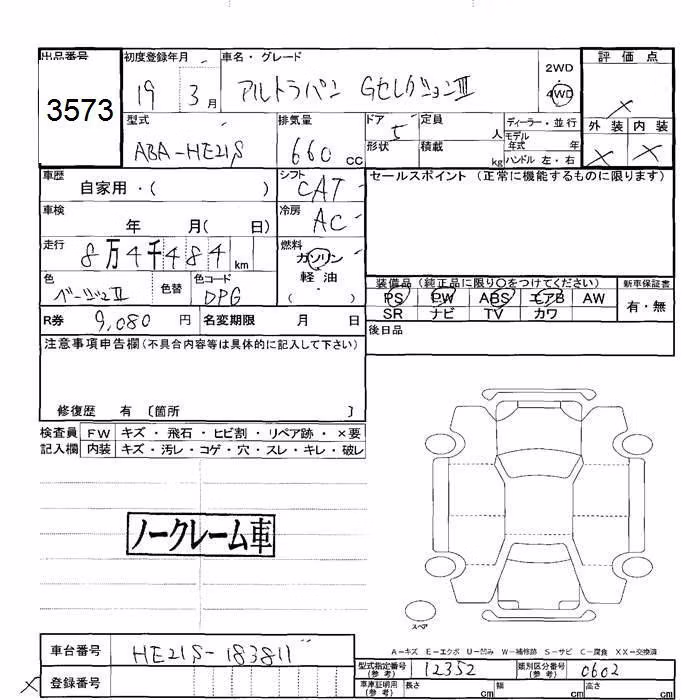 出品番号
3573
初度登録年月
19 3月
車名・グレード
アルトラパン GセレクションⅢ
2WD
4WD
評価点
×
型式
ABA-HE21S
排気量
660 cc
ドア 5
形状
定員 人
積載 kg
ディーラー・並行
モデル年式 年
ハンドル 左・右
外装 内装
× ×
車歴
自家用・( )
シフト
CAT
セールスポイント (正常に機能するものに限ります)
車検
年 月( 日)
冷房
AC
走行
8万4千484 km
燃料
ガソリン
軽油
( )
色
ベージュⅡ
色替
色コード
DPG
装備品 (純正品に限り○をつけてください)
新車保証書
PS PW ABS エアB AW
SR ナビ TV カワ
有・無
R券 9,080 円 名変期限 月 日
後日品
注意事項申告欄(不具合内容等は具体的に記入して下さい)
修復歴 有 〔箇所 〕
検査員記入欄
FW キズ・飛石・ヒビ割・リペア跡・×要
内装 キズ・汚レ・コゲ・穴・スレ・キレ・破レ
ノークレーム車
スペア
A-キズ E-エクボ U-凹み W-補修跡 S-サビ C-腐食 XX-交換済
車台番号 HE21S-183811
× 登録番号
型式指定番号(参考) 12352
類別区分番号(参考) 0602
車庫証明用(参考) 長さ cm 幅 cm 高さ cm